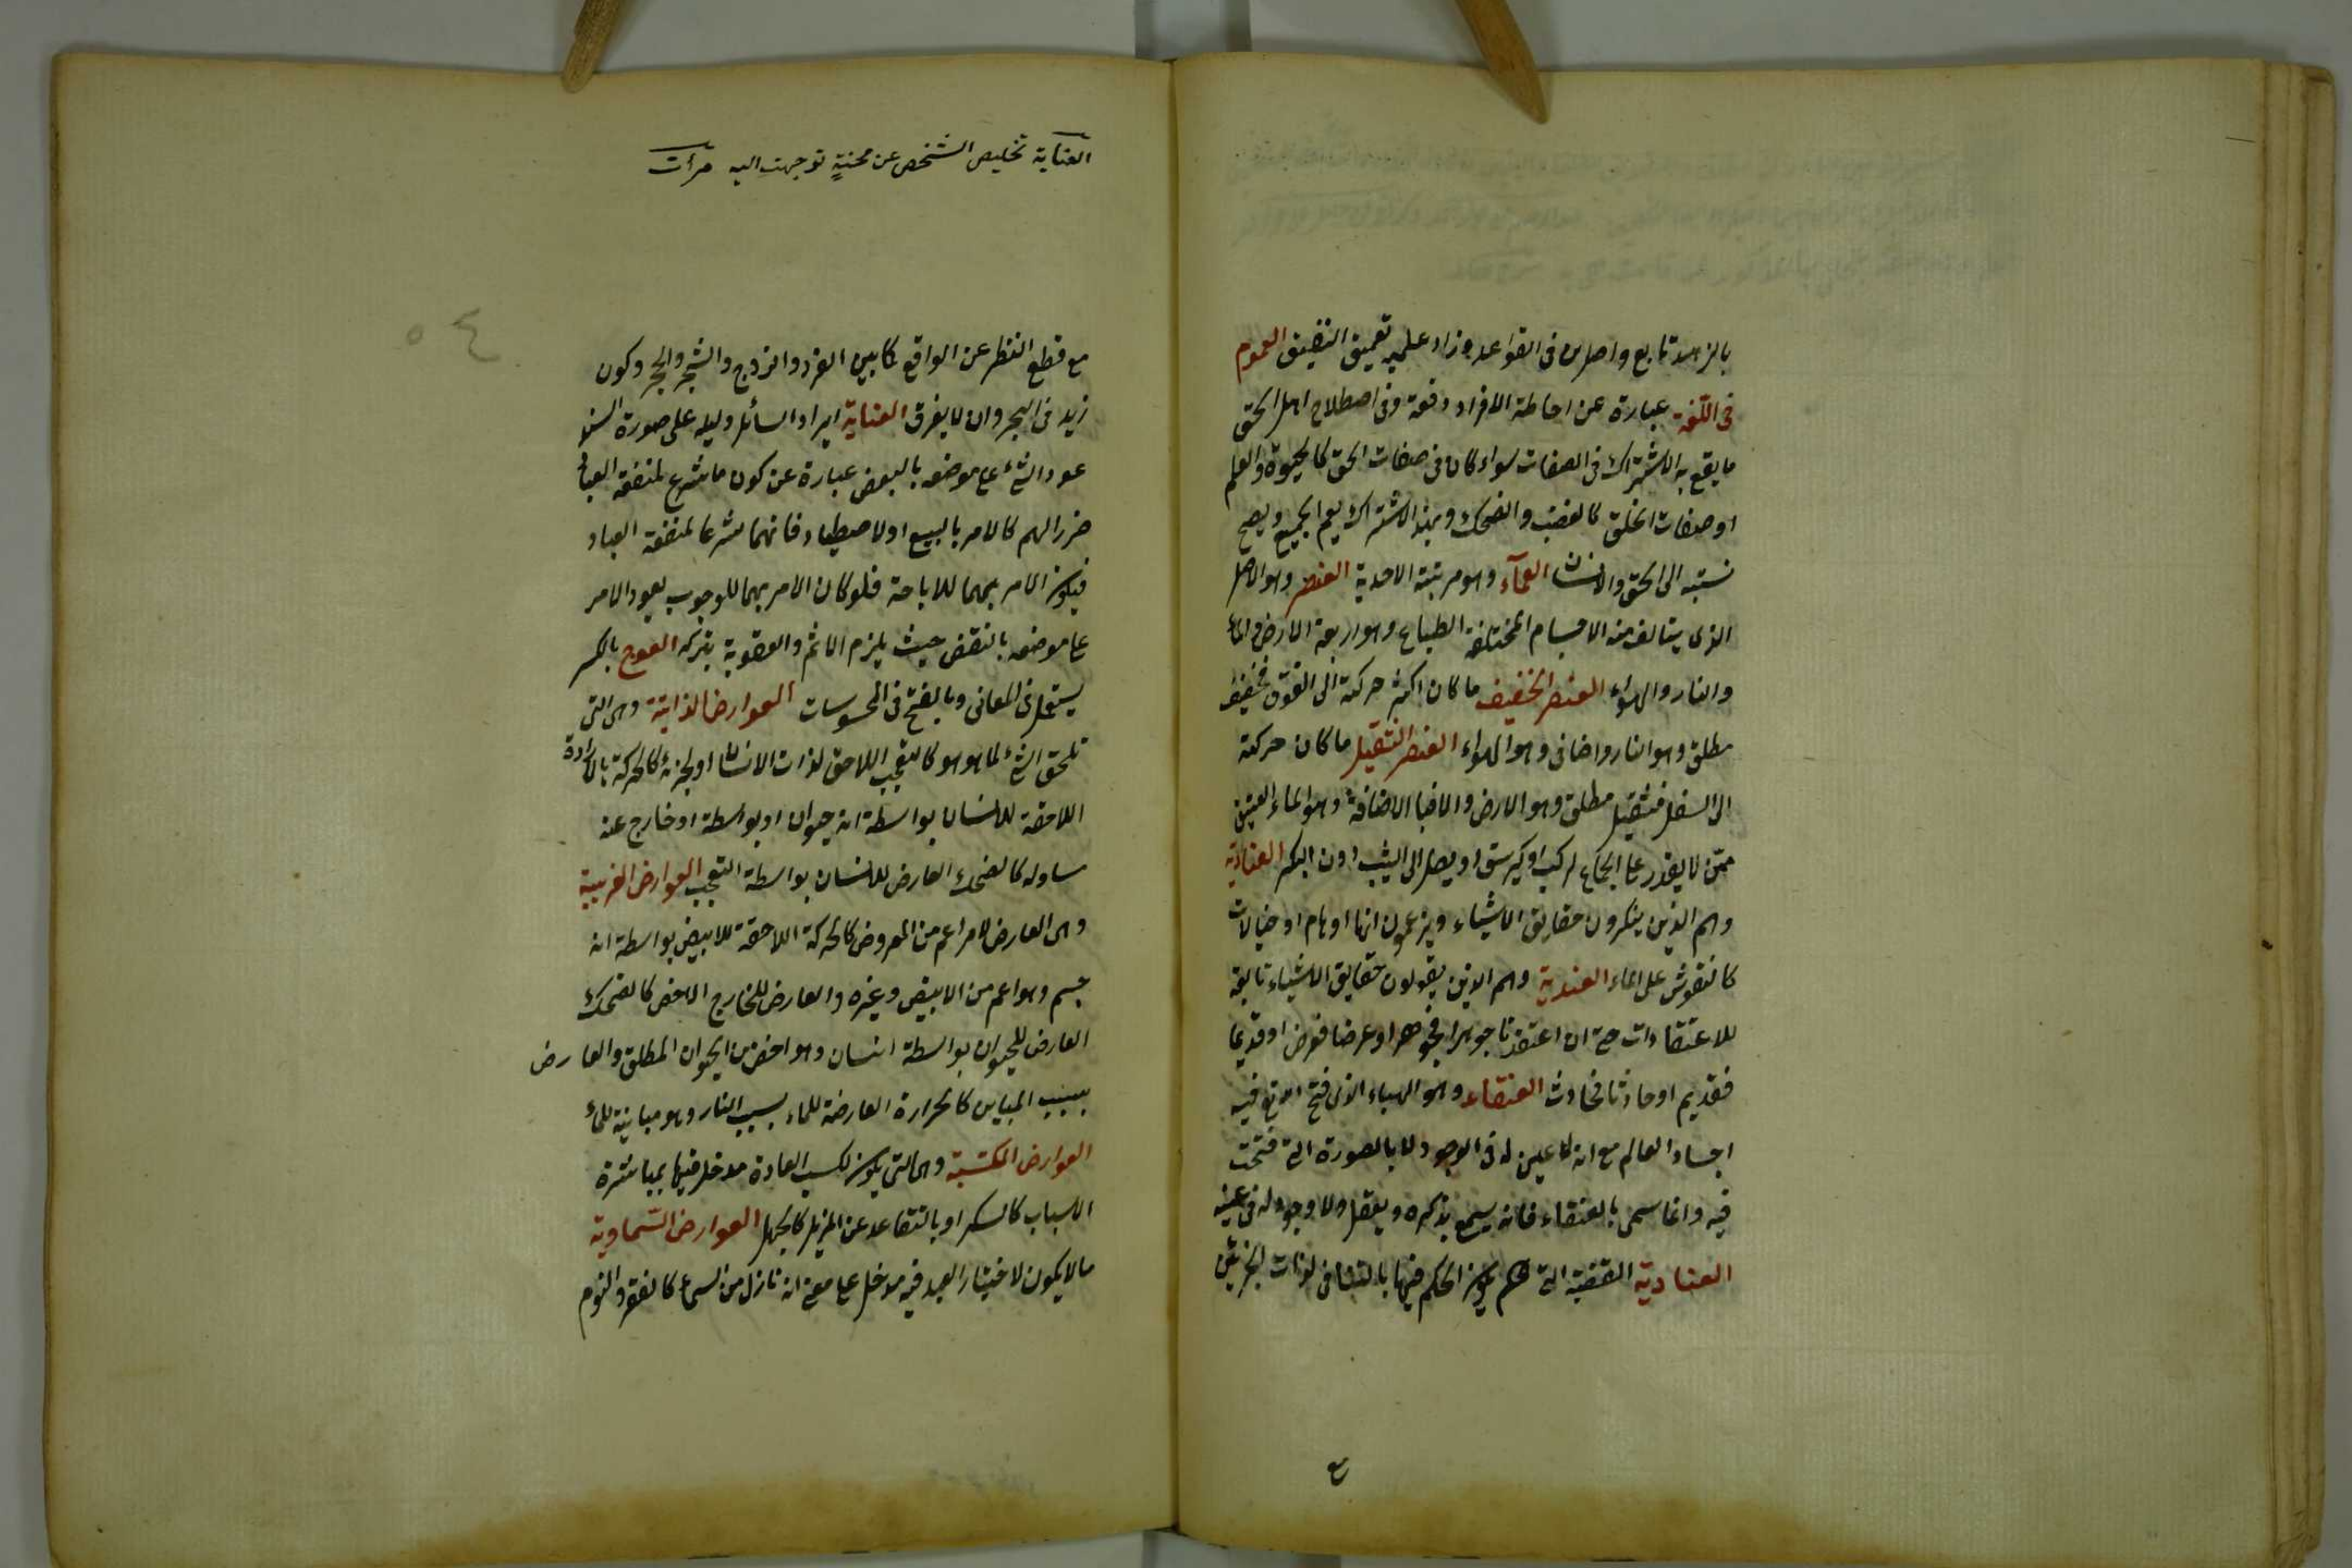 بالزهد تابع واصل من فى القواعد وزاد عليه تعميق التضييق العموم
فى اللّغة عبارة عن احاطة الافراد دفعة وفى اصطلاح اهل الحق
ما يقع به الاشتراك فى الصفات سواء كان فى صفات الحق كالحيوة والعلم
او صفات الخلق كالغضب والضحك وبهذا الاشتراك يعم الجميع ويصح
نسبته الى الحق والانسان العمآء وهو مرتبة الاحدية العنصر وهو الاصل
الذى يتالف منه الاجسام المختلفة الطباع وهو اربعة الارض والماء
والنار والهواء العنصر الخفيف ما كان اكثر حركته الى الفوق فخفيف
مطلق وهو النار واضافى وهو الهواء العنصر الثقيل ما كان حركته
الى السفل فثقيل مطلق وهو الارض والا فبالاضافة وهو الماء العنين
ممّن لا يقدر على الجماع لمرض او كبر سن او يصل الى الثيب دون البكر العنادية
وهم الذين ينكرون حقايق الاشياء ويزعمون انها اوهام او خيالات
كالنقوش على الماء العندية وهم الذين يقولون حقايق الاشياء تابعة
للاعتقادات حتى ان اعتقدنا جوهرا فجوهر او عرضا فعرض او قديما
فقديم او حادثا فحادث العنقاء وهو الهباء الذى فتح الله تع فيه
اجساد العالم مع انه لا عين له فى الوجود الا بالصورة التى فتحت
فيه وانما سمى بالعنقاء فانه يسمع بذكره ويعقل ولا وجود له فى عينه
العنادية القضية التى يكون الحكم فيها بالتنافى لذات الجزئين
مع
العناية تخليص الشخص عن محنةٍ توجهت اليه مرأت
٥٤
مع قطع النظر عن الواقع كما بين الفرد والزوج والشجر والحجر وكون
زيد فى البحر وان لا يغرق العناية ايراد السائل دليله على صورة
عود الشئ على موضوعه بالنقض عبارة عن كون ما شرع لمنفعة العباد
ضررا لهم كالامر بالبيع والاصطياد فانهما شرعا لمنفعة العباد
فيكون الامر بهما للاباحة فلو كان الامر بهما للوجوب يعود الامر
على موضوعه بالنقض حيث يلزم الاثم والعقوبة بتركه العوج بالكسر
يستعمل فى المعانى وبالفتح فى المحسوسات العوارض الذاتية وهى التى
تلحق الشئ لما هو هو كالتعجب اللاحق لذات الانسان او لجزئه كالحركة بالارادة
اللاحقة للانسان بواسطة انه حيوان او بواسطة او خارج عنه
مساو له كالضحك العارض للانسان بواسطة التعجب العوارض الغريبة
وهى العارض لامر اعم من المعروض كالحركة اللاحقة للابيض بواسطة انه
جسم وهو اعم من الابيض وغيره والعارض للخارج الاخص كالضحك
العارض للحيوان بواسطة انسان وهو اخص من الحيوان المطلق والعارض
بسبب المباين كالحرارة العارضة للماء بسبب النار وهو مباينة للماء
العوارض المكتسبة وهى التى يكون لكسب العادة مدخل فيها بمباشرة
الاسباب كالسكر او بالتقاعد عن المزيل كالجهل العوارض السّماوية
ما لا يكون لاختيار العبد فيه مدخل على معنى انه نازل من السماء كالصغر والنوم